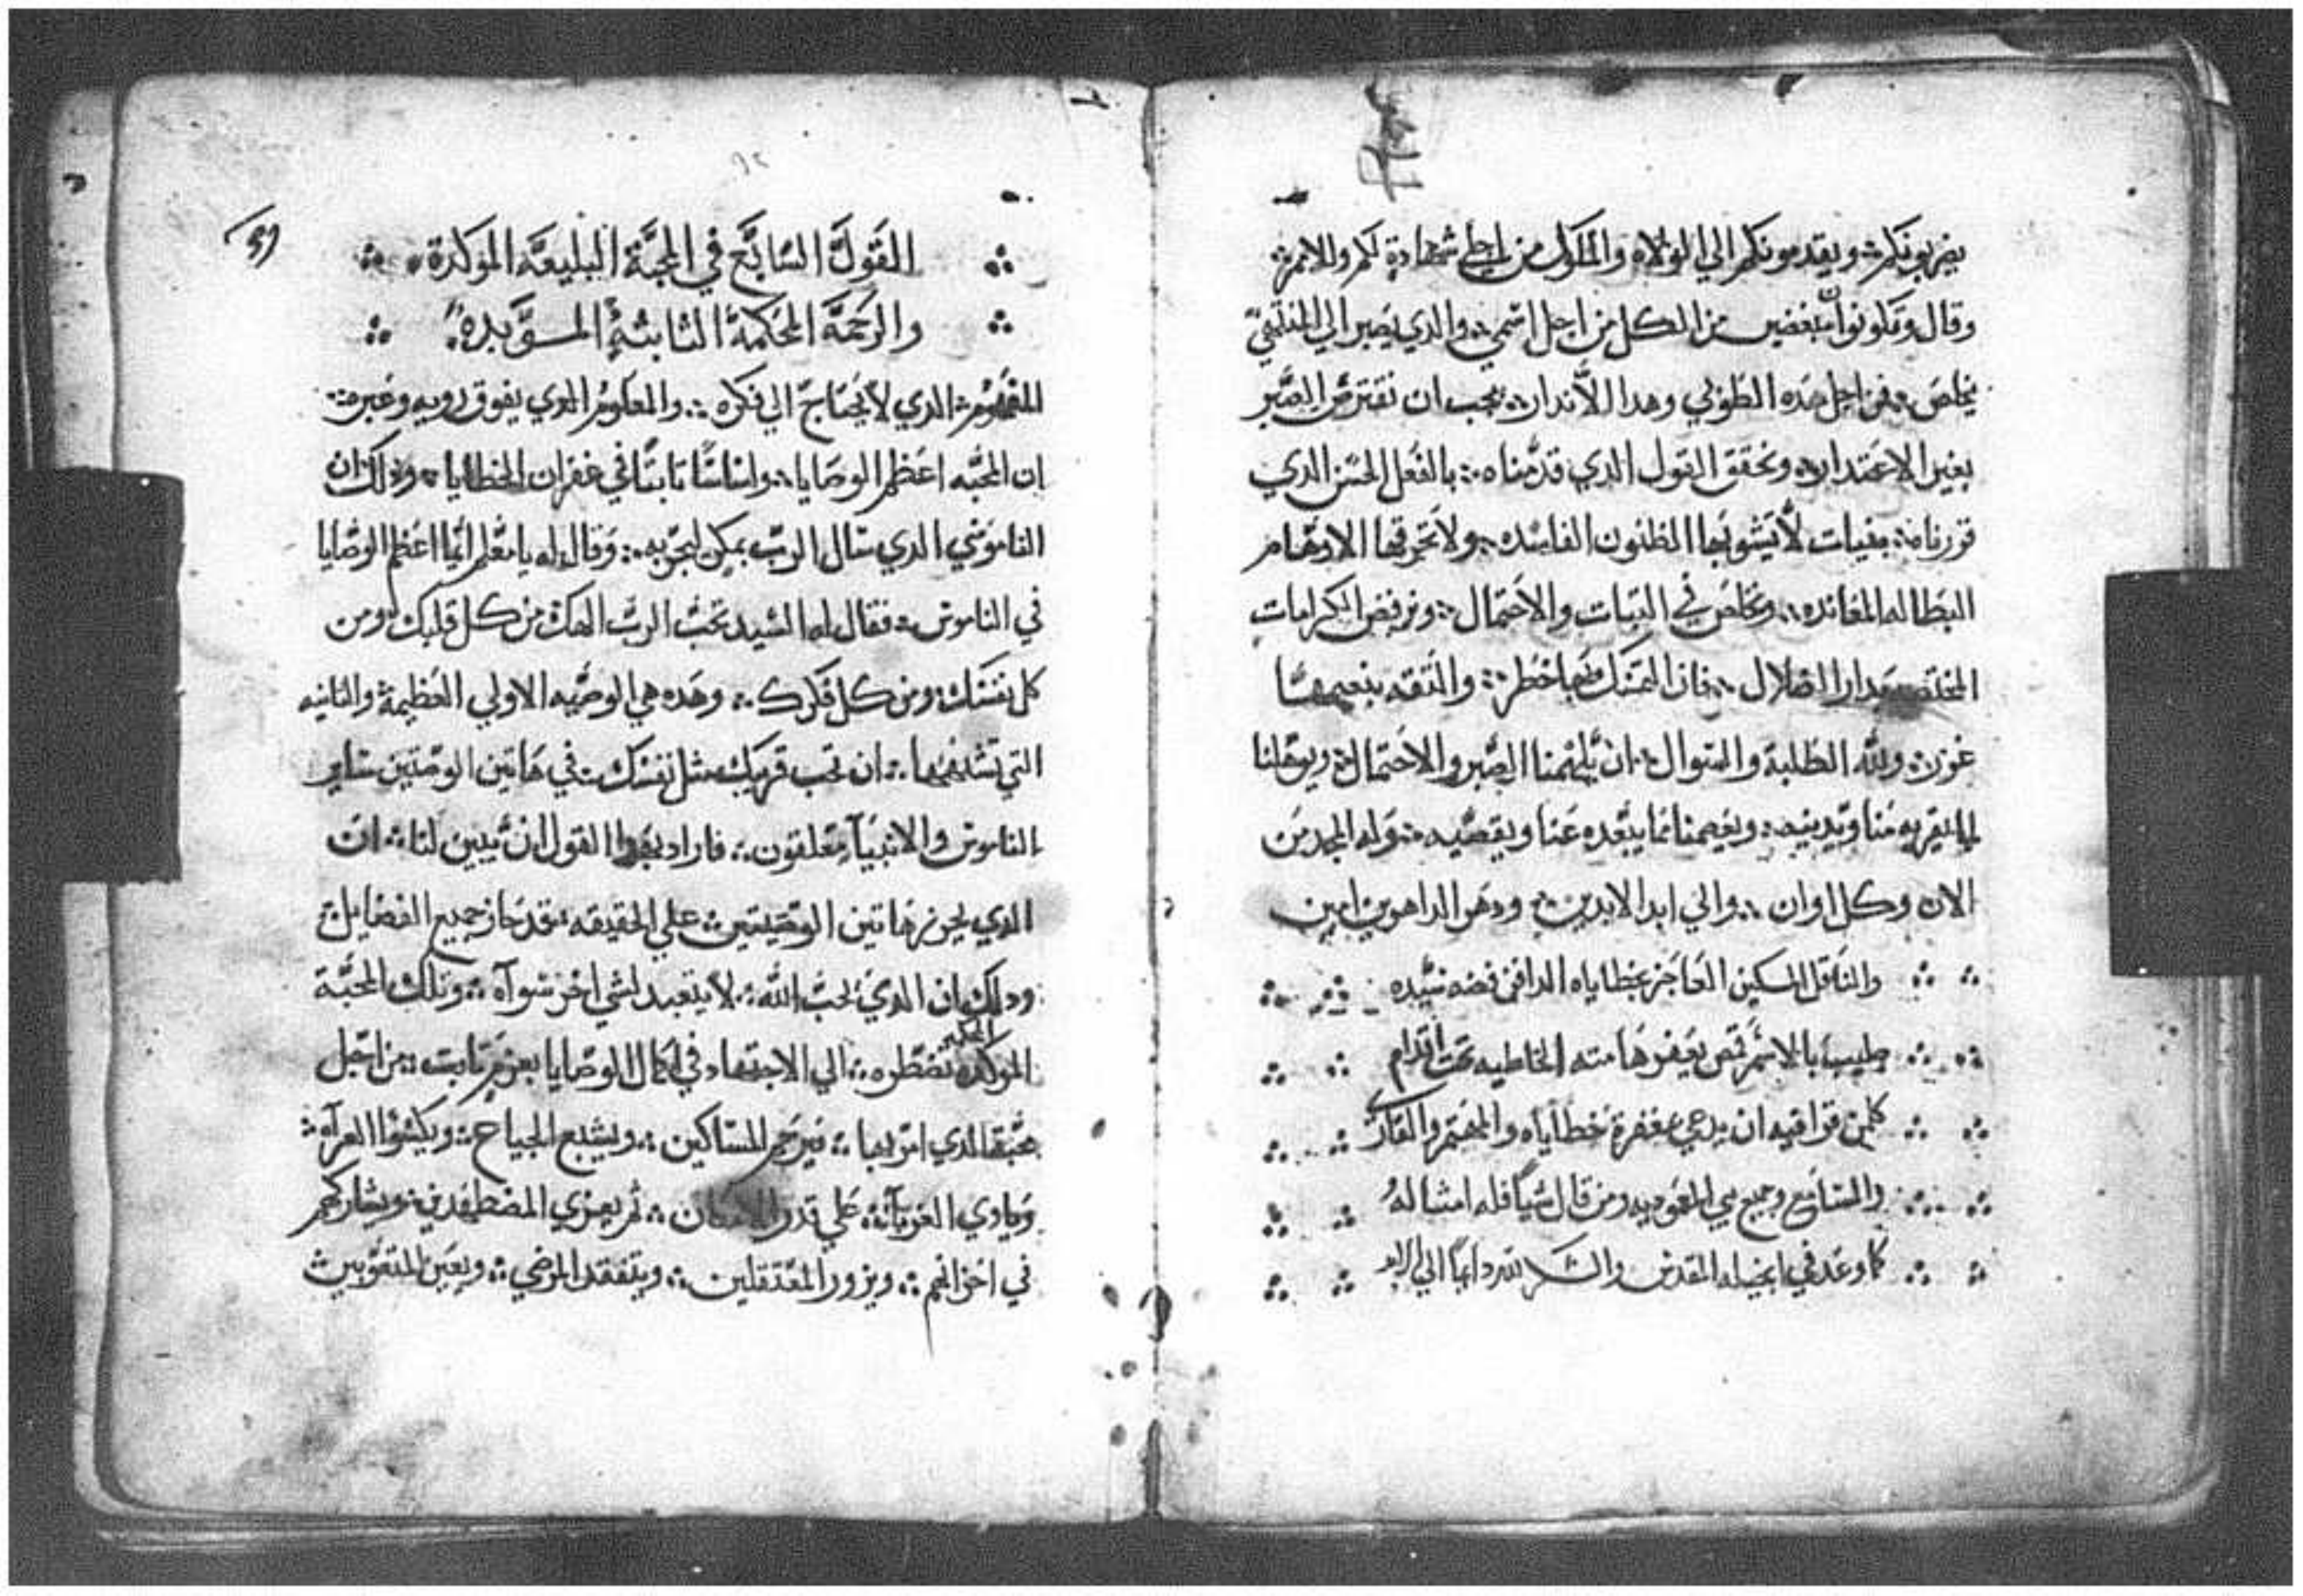 يضربونكم ويقدمونكم الي الولاه والملوك من اجلي شهادة لكم وللامم
وقال وتكونوا مبغضين من الكل من اجل اسمي والذي يصبر الي المنتهي
يخلص فمن اجل هذه الطوبي وهدا الاندار يجب ان نفترض الصبر
بغير الاعتدار ونحقق القول الدي قدمناه بالفعل الحسن الدي
قررناه بنيات لا يشوبها الظنون الفاسده ولا تخرقها الاوهام
البطاله المعانده ونخلص في التبات والاحتمال ونرفض الكرامات
المختصه بدار الضلال فان التمسك بها خطر والتقه بنعيمها
غرر ولله الطلبة والسوال ان يلهمنا الصبر والاحتمال ويوهلنا
لما يقربه منا ويدنيه ويعصمنا مما يبعده عنا ويقصيه وله المجد من
الان وكل اوان والي ابد الابدين ودهر الداهرين امين
والناقل المسكين العاجز بخطاياه الدافن فضه سيده
بالاسم قمص يعفر هامته الخاطيه تحت اقدام
كلمن قرا فيه ان يدعي بمغفرة خطاياه والمهتم والقاري
والسامع وجميع بني المعموديه ومن قال شيا فله امثاله
كما وعد في انجيله المقدس والشكر لله دايما الي الابد
القول السابع في المحبة البليغه الموكدة
والرحمة المحكمة الثابتة المويده
المفهوم الدي لا يحتاج الي فكره والمعلوم الدي يفوق رويه وعبره
ان المحبه اعظم الوصايا واساسا تابتا في غفران الخطايا ودلك ان
الناموسي الدي سال الرب بمكر ليجربه وقال له يا معلم ايما اعظم الوصايا
في الناموس فقال له السيد تحب الرب الهك من كل قلبك ومن
كل نفسك ومن كل فكرك وهده هي الوصيه الاولي العظيمة والثانيه
التي تشبهها ان تحب قريبك مثل نفسك في هاتين الوصيتين ساير
الناموس والانبيا متعلقون فاراد بهدا القول ان يبين لنا ان
الدي يحرز هاتين الوصيتين علي الحقيقه فقد حاز جميع الفضايل
ودلك ان الدي يحب الله لا يتعبد لشي اخر سواه وتلك المحبة
الموكده تضطره الي الاجتهاد في اكمال الوصايا بعزم تابت من اجل
محبة الدي امر بها فيرحم المساكين ويشبع الجياع ويكسوا العراه
وياوي الغربا علي قدر الامكان ثم يعزي المضطهدين ويشاركهم
في احزانهم ويزور المعتقلين ويتفقد المرضي ويعين المتعوبين